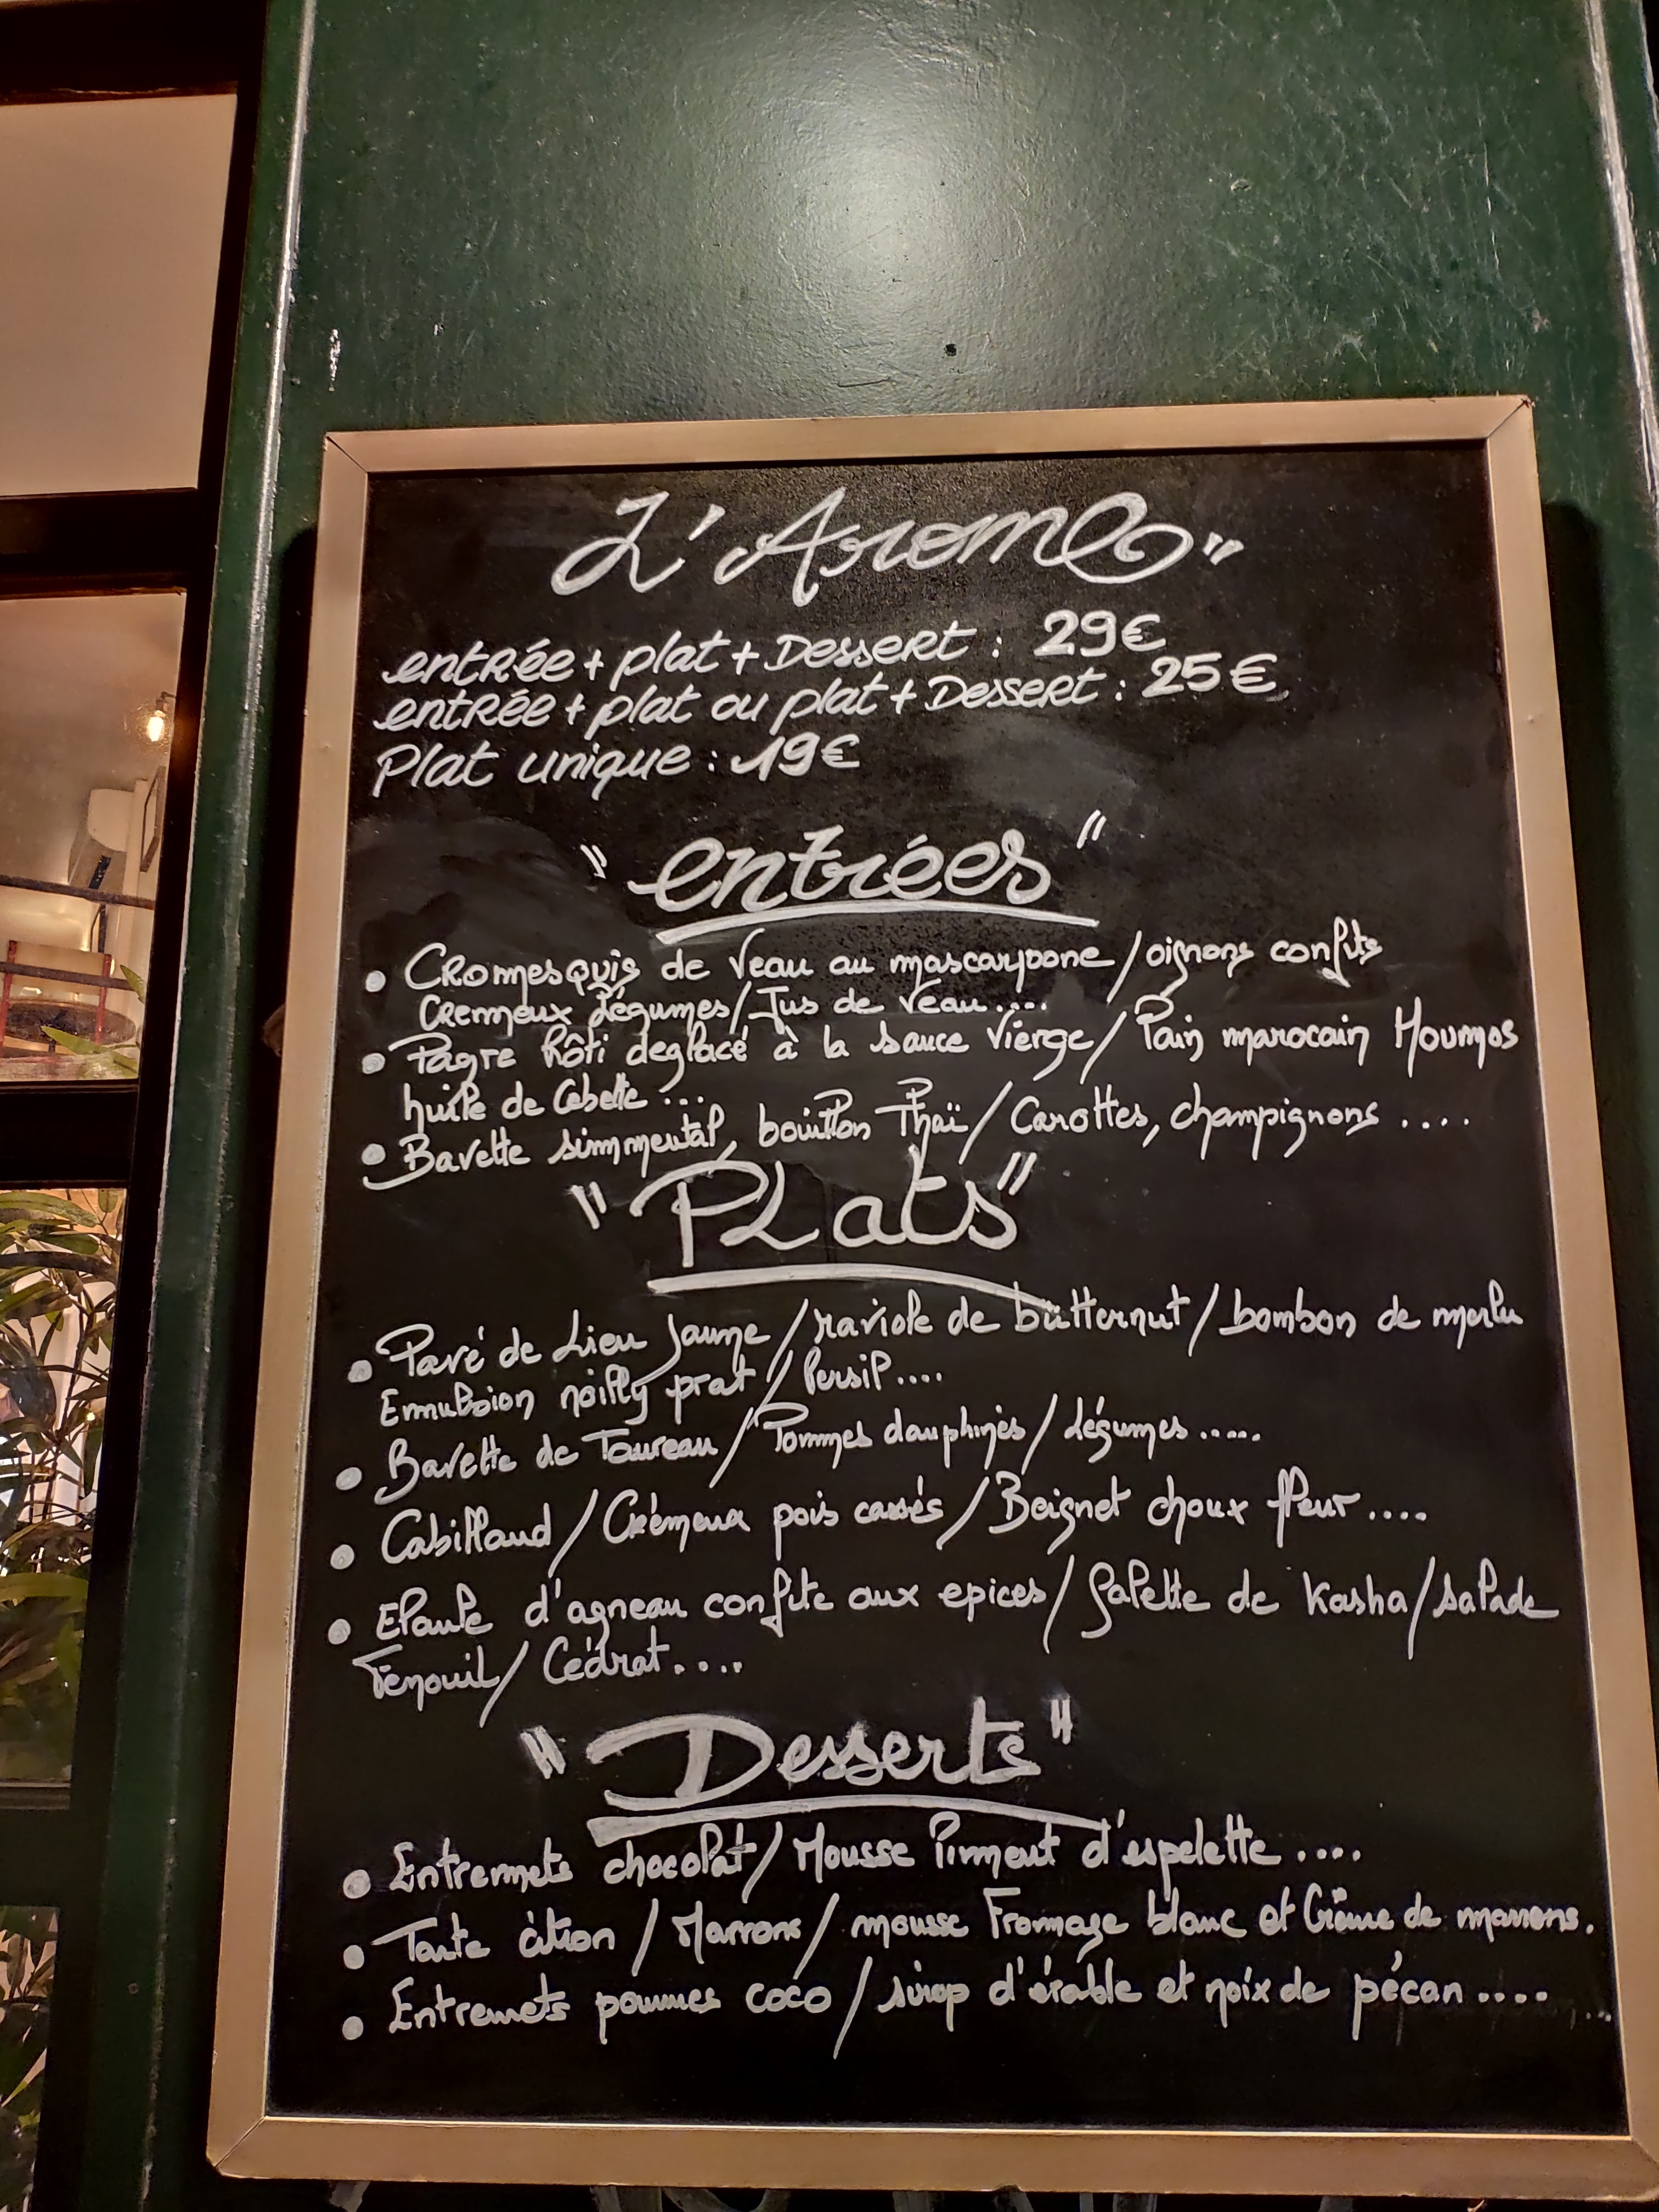 L'Arome"
entrée + plat + Dessert : 29€
entrée + plat ou plat + Dessert : 25€
Plat unique : 19€
"entrées"
• Cromesquis de Veau au mascarpone / oignons confits
Cremeux légumes / Jus de Veau....
• Pagre Rôti deglacé à la sauce Vierge / Pain marocain Houmos
huile de Cebette ...
• Bavette simmental, bouillon Thaï / Carottes, champignons ....
"PLats"
• Pavé de Lieu Jaune / raviole de butternut / bombon de merlu
Emulsion noilly prat / Persil....
• Bavette de Taureau / Pommes dauphines / légumes .....
• Cabillaud / Crémeux pois cassés / Beignet choux fleur ....
• Epaule d'agneau confite aux epices / galette de Kasha / salade
Fenouil / Cédrat....
"Desserts"
• Entremets chocolat / Mousse Piment d'espelette ....
• Tarte citron / Marrons / mousse Fromage blanc et Crème de marrons.
• Entremets pommes coco / sirop d'érable et noix de pécan ....